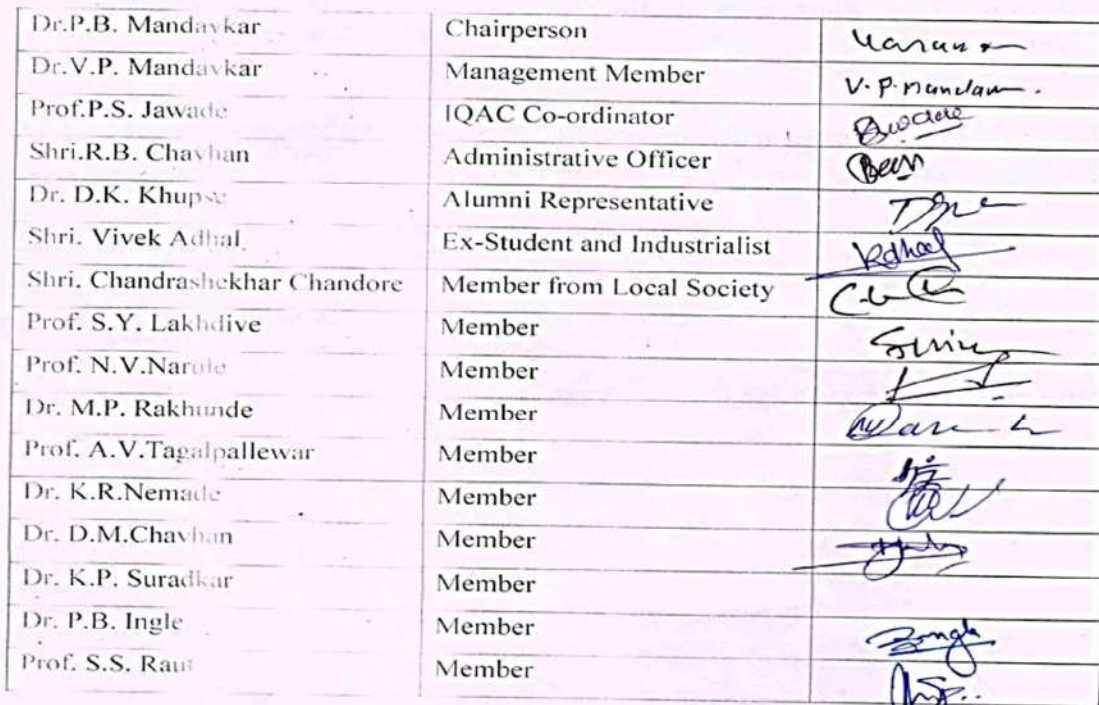 Dr.P.B. Mandavkar Chairperson
Dr.V.P. Mandavkar Management Member V.P.Mandav
Prof.P.S. Jawade IQAC Co-ordinator
Shri.R.B. Chavhan Administrative Officer
Dr. D.K. Khupse Alumni Representative
Shri. Vivek Adhal Ex-Student and Industrialist Adhal
Shri. Chandrashekhar Chandore Member from Local Society
Prof. S.Y. Lakhdive Member
Prof. N.V.Narole Member
Dr. M.P. Rakhunde Member
Prof. A.V.Tagalpallewar Member
Dr. K.R.Nemade Member
Dr. D.M.Chavhan Member
Dr. K.P. Suradkar Member
Dr. P.B. Ingle Member Ingle
Prof. S.S. Raut Member